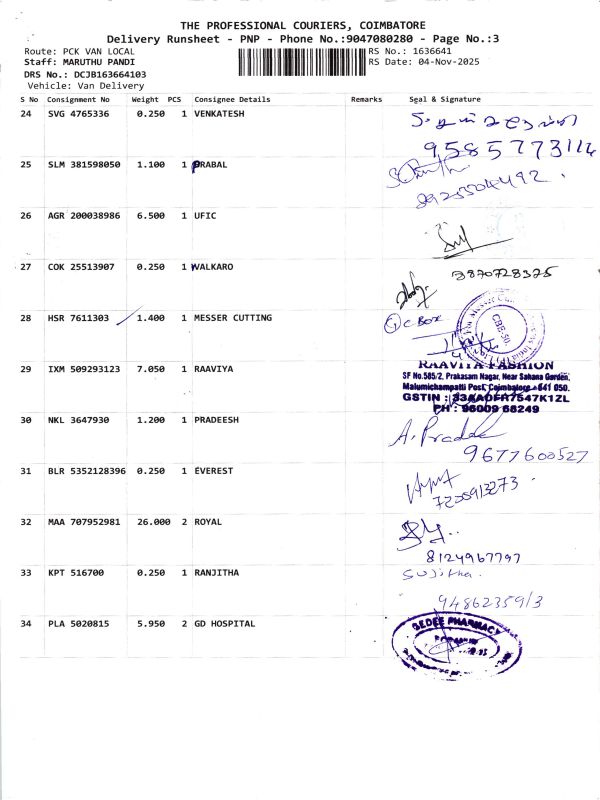 THE PROFESSIONAL COURIERS, COIMBATORE
Delivery Runsheet - PNP - Phone No.:9047080280 - Page No.:3
Route: PCK VAN LOCAL RS No.: 1636641
Staff: MARUTHU PANDI RS Date: 04-Nov-2025
DRS No.: DCJB163664103
Vehicle: Van Delivery
S No Consignment No Weight PCS Consignee Details Remarks Seal & Signature
24 SVG 4765336 0.250 1 VENKATESH
9585773114
25 SLM 381598050 1.100 1 PRABAL
8925504492
26 AGR 200038986 6.500 1 UFIC
27 COK 25513907 0.250 1 WALKARO 9870728325
28 HSR 7611303 1.400 1 MESSER CUTTING
C BOX
29 IXM 509293123 7.050 1 RAAVIYA RAAVIYA FASHION
SF No.585/2, Prakasam Nagar, Near Sahana Garden,
Malumichampatti Post, Coimbatore - 641 050.
GSTIN : 33AAOFR7547K1ZL
PH : 96009 66249
30 NKL 3647930 1.200 1 PRADEESH
A. Pradee
9677600527
31 BLR 5352128396 0.250 1 EVEREST
7205913273
32 MAA 707952981 26.000 2 ROYAL
8124967797
33 KPT 516700 0.250 1 RANJITHA Sujitha.
9486235913
34 PLA 5020815 5.950 2 GD HOSPITAL GEDEE PHARMACY